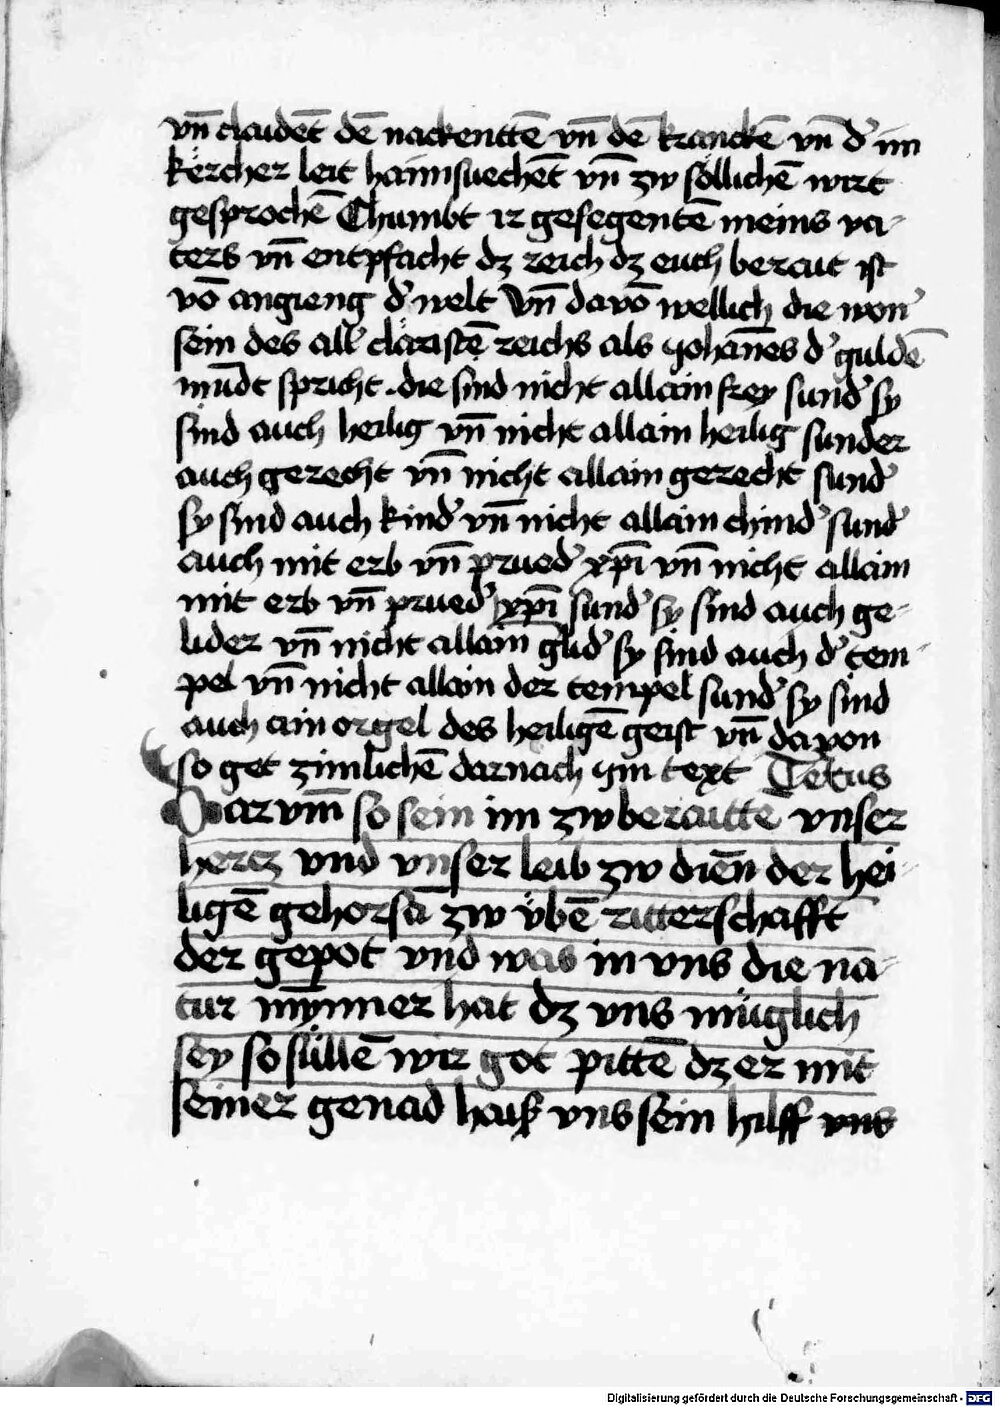 vn̄ claidet̄ dē nackenttē vn̄ dē kranckē vn̄ d' im
kercher leit haimsuechet̄ vn̄ zw söllichē wirt
gesprochē Chumbt ir gesegentē meins va-
ters vn̄ entpfacht dz reich dz euch berait ist
vō angieng d' welt Vn̄ davō wellich die won'
sein des all' claristē reichs als yohan̄es d' guldē
mūdt spricht . die sind nicht allain frey sund' sy
sind auch heilig vn̄ nicht allain heilig sunder
auch gerecht vn̄ nicht allain gerecht sund'
sy sind auch kind' vn̄ nicht allain chind' sund'
auch mit erb vn̄ prued' xp̄i vn̄ nicht allain
mit erb vn̄ prued' xp̄i sund' sy sind auch ge-
lider vn̄ nicht allain glid' sy sind auch d' tem-
pel vn̄ nicht allain der tempel sund' sy sind
auch ain orgel des heiligē geist vn̄ davon
so get zimlichē darnach ym text Textus
Darvm̄ so sein im zwberaitte vnser
hercz vnd vnser leib zw dien̄ der hei-
ligē gehorsā zw übē ritterschafft
der gepot vnd was in vns die na-
tur mynner hat dz vns müglich
sey so süllē wir got pittē dz er mit
seiner genad haiß vns sein hilff vns
Digitalisierung gefördert durch die Deutsche Forschungsgemeinschaft - DFG